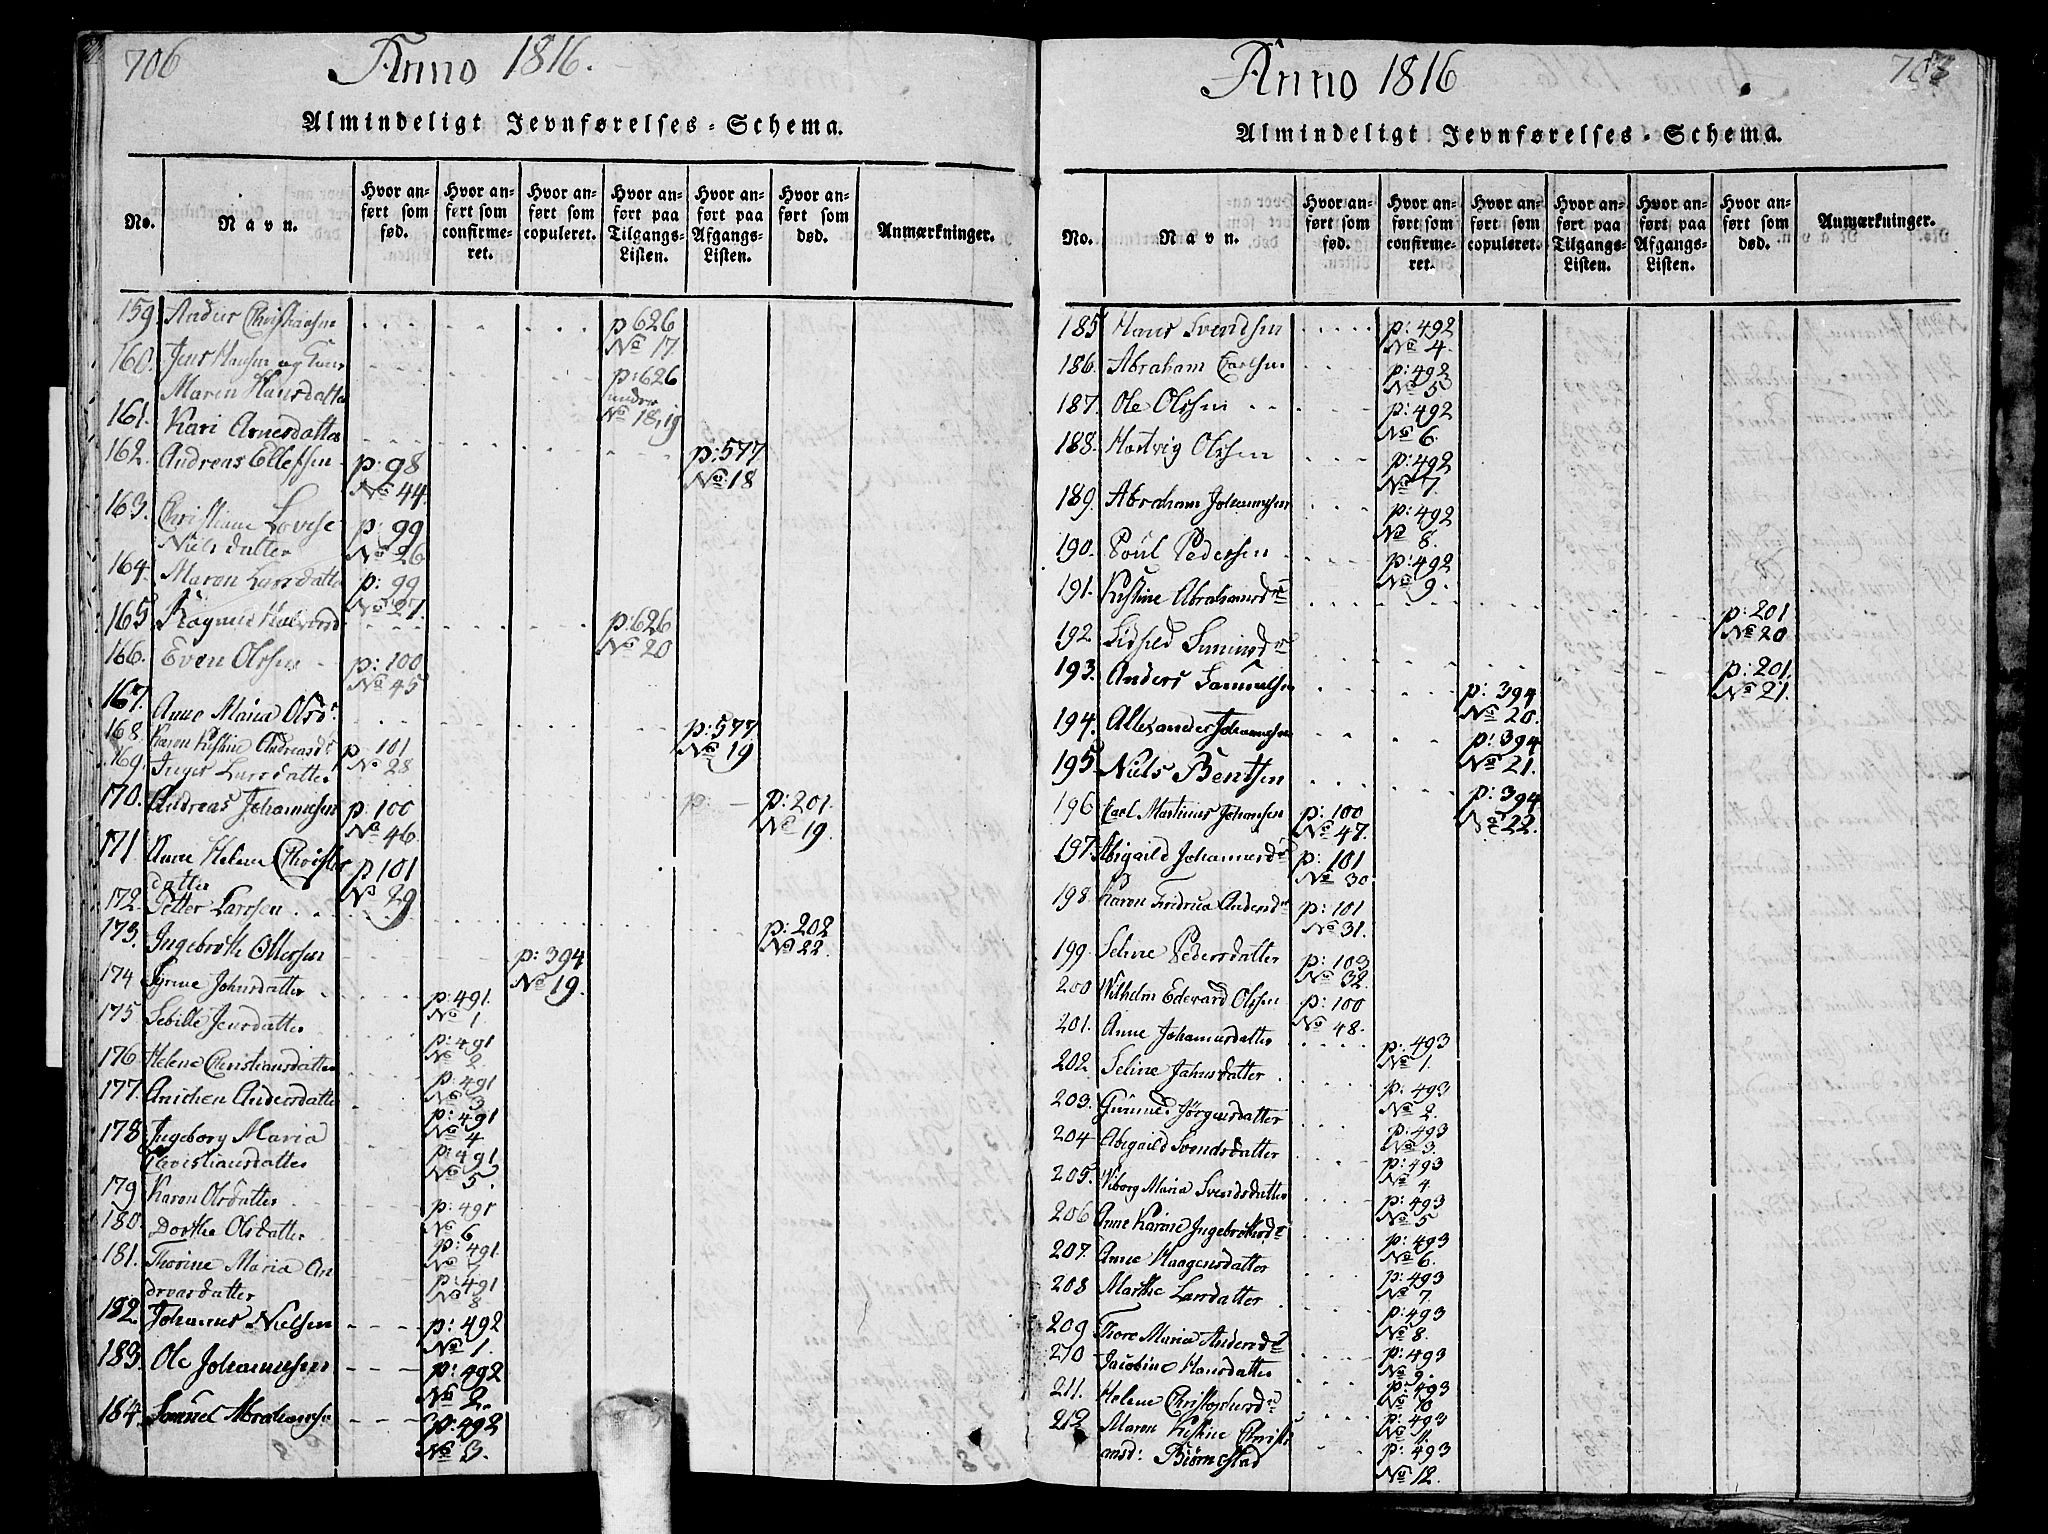 706
Anno 1816.
Almindeligt Jevnførelses-Schema.
No.
Navn.
Hvor anført som fød.
Hvor anført som confirmeret.
Hvor anført som copuleret.
Hvor anført paa Tilgangs-Listen.
Hvor anført paa Afgangs-Listen.
Hvor anført som død.
Anmærkninger.
159. Anders Christiansen p 626 No 17.
160. Jens Hansen og
Maren Hansdatter p: 626 No 18, 19
161. Kari Arnesdatter p: 577 No 18
162. Andreas Ellefsen p: 98 No 44.
163. Christiane Lovise
Nielsdatter p: 99 No 26
164. Maren Larsdatter p: 99 No 27.
165 p: 626 No 20
166. Even Olssen p: 100 No 45
167. Anne Maria Olsdr p: 577 No 19
168. Karen Kistine Andreasdr p 101 No 28
169. Inger Larsdatter p: 201. No 19.
170. Andreas Johannesen p: 100 No 46
171. Anne Helene
datter p 101 No 29
172. Petter Larssen p: 202 No 22.
173. Ingebreth Ollessen p: 394 No 19.
174 Johnsdatter p: 491. No 1.
175 Sebille Jensdatter p: 491 No 2.
176 Helene Christiansdatter p: 491 No 3.
177. Anichen Andersdatter p: 491 No 4
178. Ingeborg Maria
Christiansdatter p: 491 No 5.
179 Karen Olsdatter p: 491 No 6
180. Dorthe Olsdatter p: 491. No 7
181. Thorine Maria An
drwasdatter p: 491 No 8
182. Johannes Nielsen p: 492 No 1.
183. Ole Johannesen p: 492 No 2.
184. Samuel Abrahams. p: 492 No 3.
Anno 1816
Almindeligt Jevnførelses-Schema.
No.
Navn.
Hvor anført som fød.
Hvor anført som confirmeret.
Hvor anført som copuleret.
Hvor anført paa Tilgangs-Listen.
Hvor anført paa Afgangs-Listen.
Hvor anført som død.
Anmærkninger.
185 Hans Svendsen p: 492 No 4.
186. Abraham Carlsen p: 492 No 5
187. Ole Olssen p: 492 No 6.
188. Hartvig Olssen p: 492 No 7.
189. Abraham Johannesen p: 492 No 8.
190. Poul Pedersen p: 492 No 9.
191. Kistine Abrahamsdr p: 201 No 20
192. p: 201. No 21.
193. Anders Samuelsen p: 394 No 20.
194. Allexander Johannesen p: 394 No 21.
195. Niels Bentsen p: 394 No 22.
196 Carl Martinus Johansen p: 100 No 47.
197. Abigaild Johannesdr p: 101 No 30
198. Karen Fredrica Andersdr p: 101 No 31.
199. Seline Pedersdatter p: 103 No 32.
200 Wilhelm Edevard Olssen p: 100 No 48.
201. Anne Johannesdatter p: 493 No 1.
202. Seline Jahnsdatter p. 493 No 2.
203. Gunned Jörgensdatter p: 493 No 3.
204 Abigaild Svendsdatter p: 493 No 4
205. Viborg Maria Svendsdatter p: 493 No 5
206 Anne Karine Ingebrethsdr p: 493 No 6.
207. Anne Haagensdatter p: 493 No 7.
208 Marthe Larsdatter p: 493 No 8.
209 Thore Maria Andersdr p: 493 No 9.
210 Jacobine Hansdatter p: 493 No 10
211. Helene Christophersdr p: 493 No 11.
212 Maren Kistine Christi
ansd: Biörnestad p: 493 No 12.